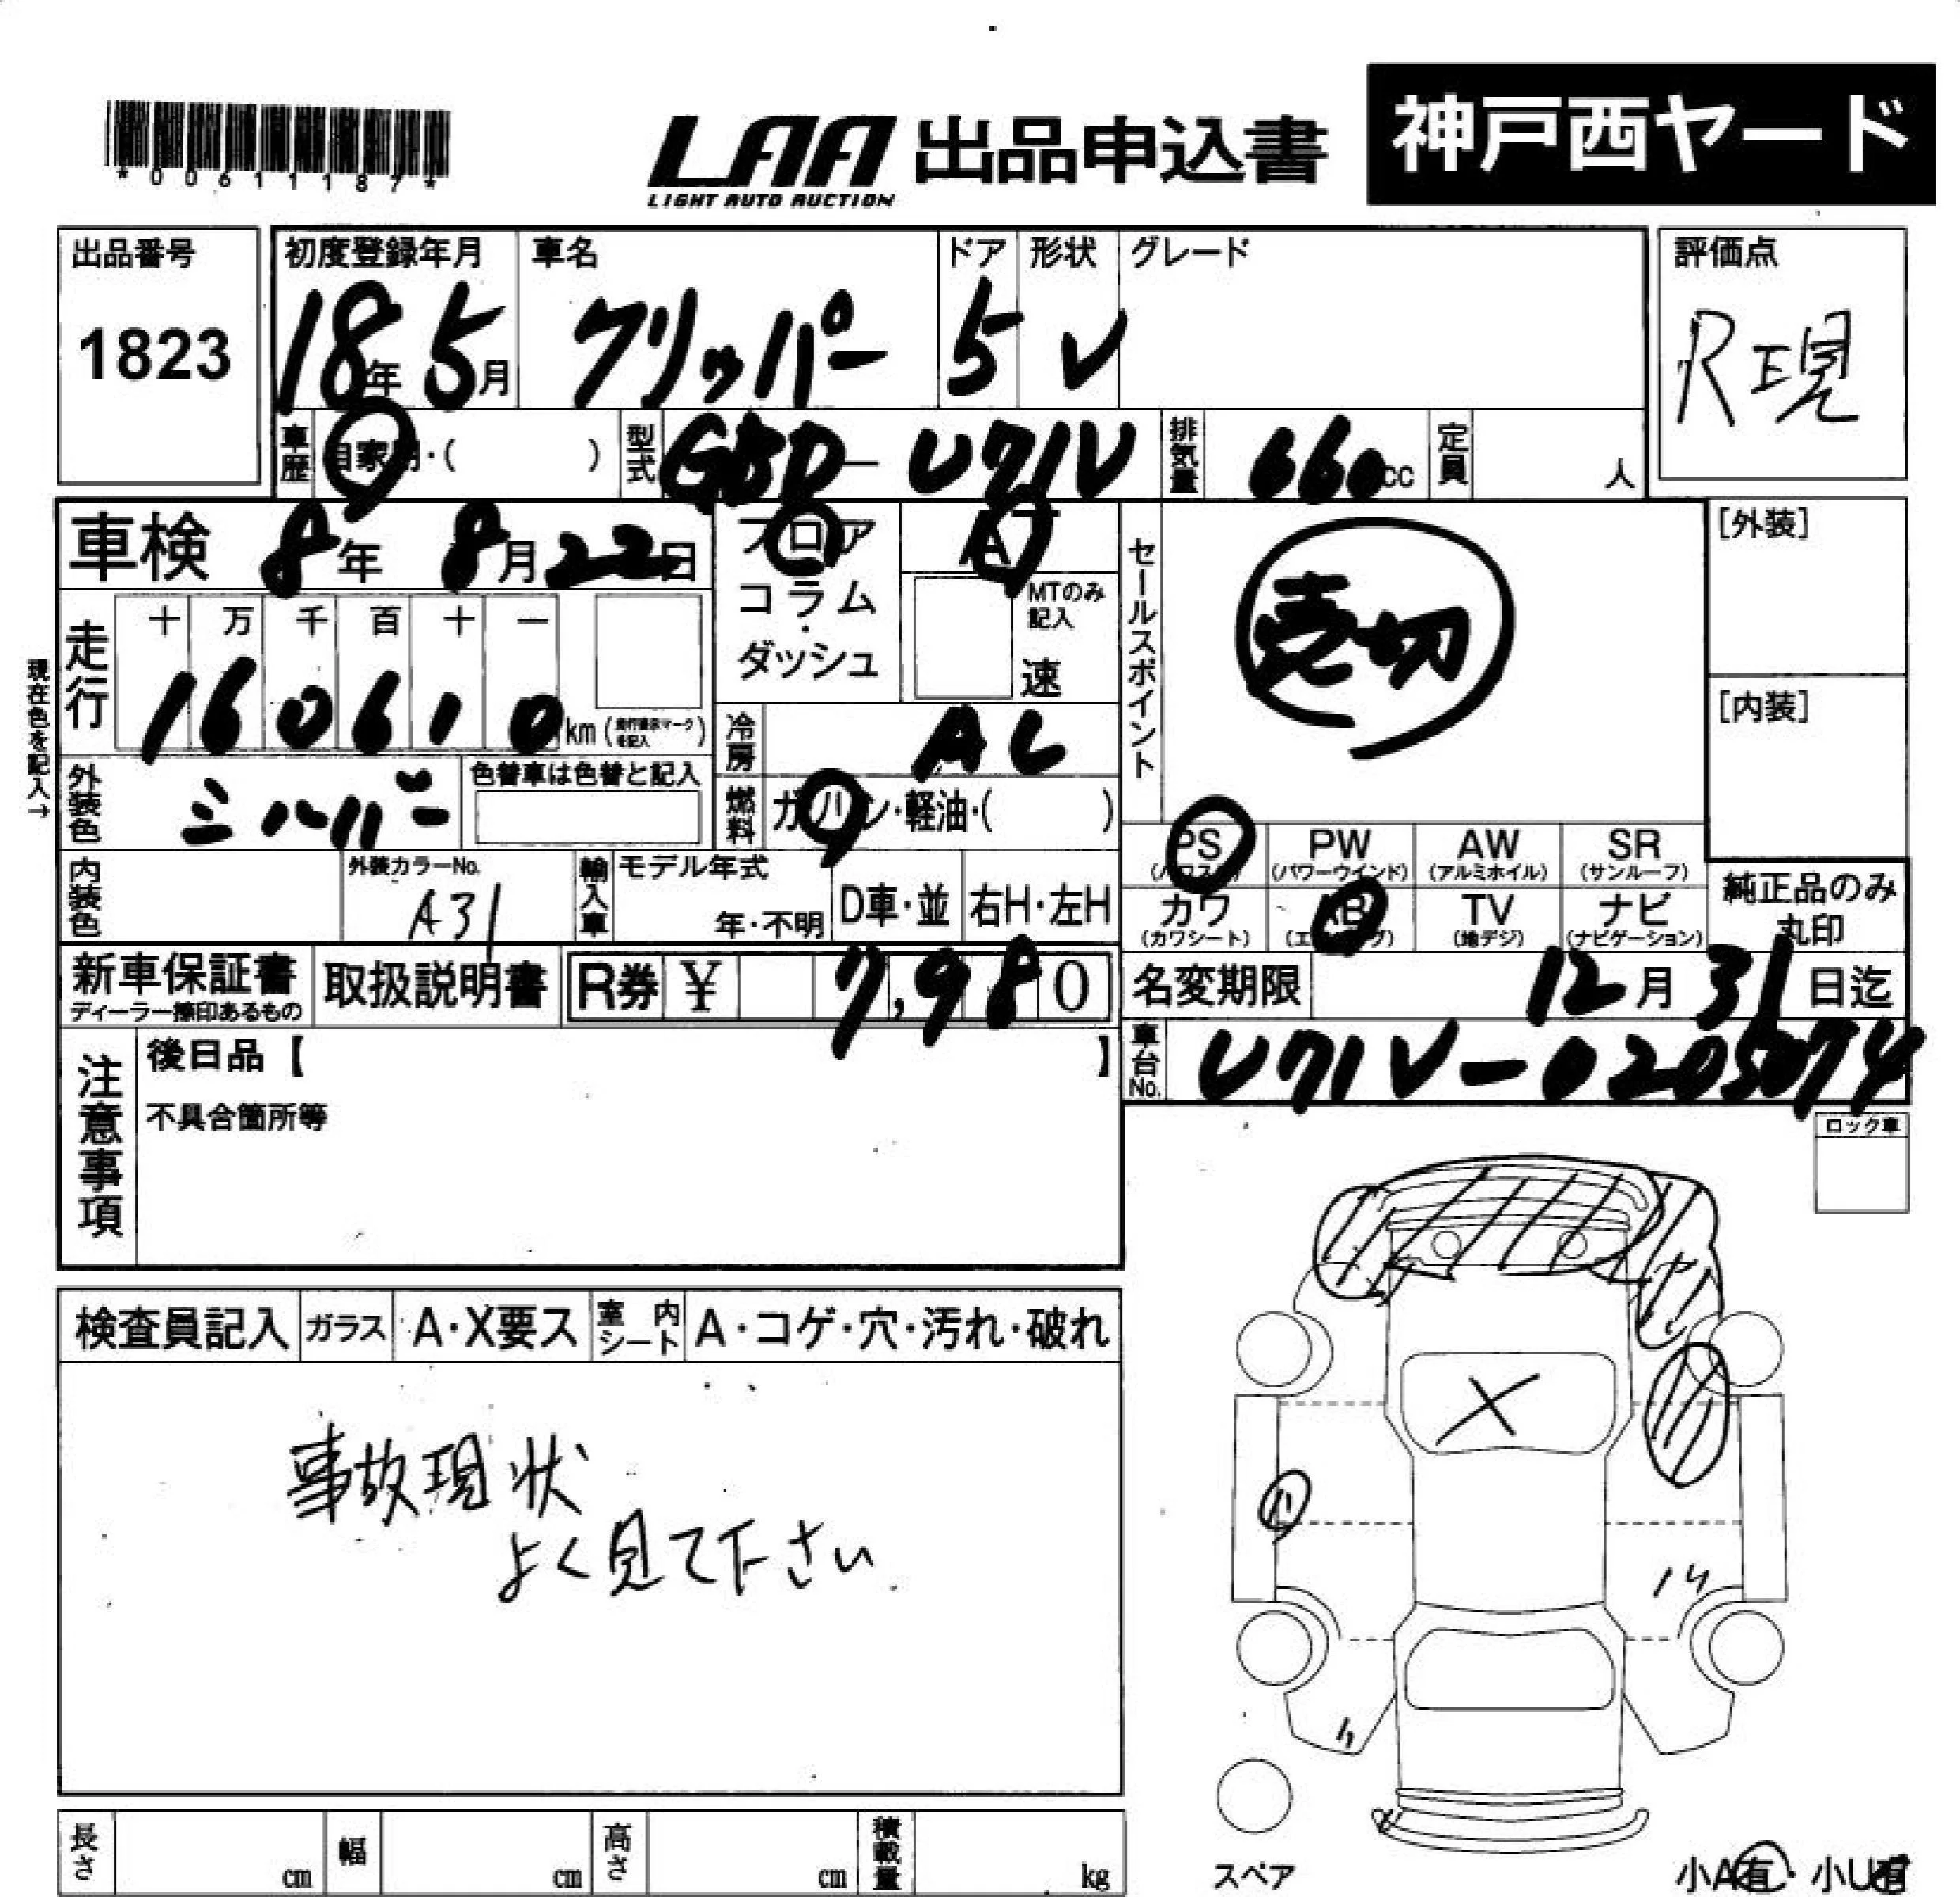 *00611187*
LAA 出品申込書 神戸西ヤード
LIGHT AUTO AUCTION
出品番号 初度登録年月 車名 ドア 形状 グレード 評価点
1823 18年 5月 クリッパー 5 V R現
車歴 自家用・( ) 型式 GBD-U71V 排気量 660cc 定員 人
車検 8年 8月22日 フロア AT セールスポイント [外装]
コラム・ダッシュ MTのみ記入 速
売切
現在色を記入→
走行 十万千百十一
160610 km (走行表示マークを記入)
[内装]
冷房 AC
外装色 シルバー 色替車は色替と記入 燃料 ガソリン・軽油・( )
PS PW AW SR
(パワステ) (パワーウインド) (アルミホイル) (サンルーフ)
内装色 外装カラーNo. A31 輸入車 モデル年式 年・不明 D車・並 右H・左H
カワ AB TV ナビ 純正品のみ丸印
(カワシート) (エアバッグ) (地デジ) (ナビゲーション)
新車保証書 取扱説明書 R券 ¥ 7,980 名変期限 12月31日迄
ディーラー捺印あるもの
注意事項 後日品【 】 車台No. U71V-0205074
不具合箇所等 ロック車
検査員記入 ガラス A・X要ス 室内シート A・コゲ・穴・汚れ・破れ
X
事故現状
よく見て下さい
長さ cm 幅 cm 高さ cm 積載量 kg スペア 小A有・小U有